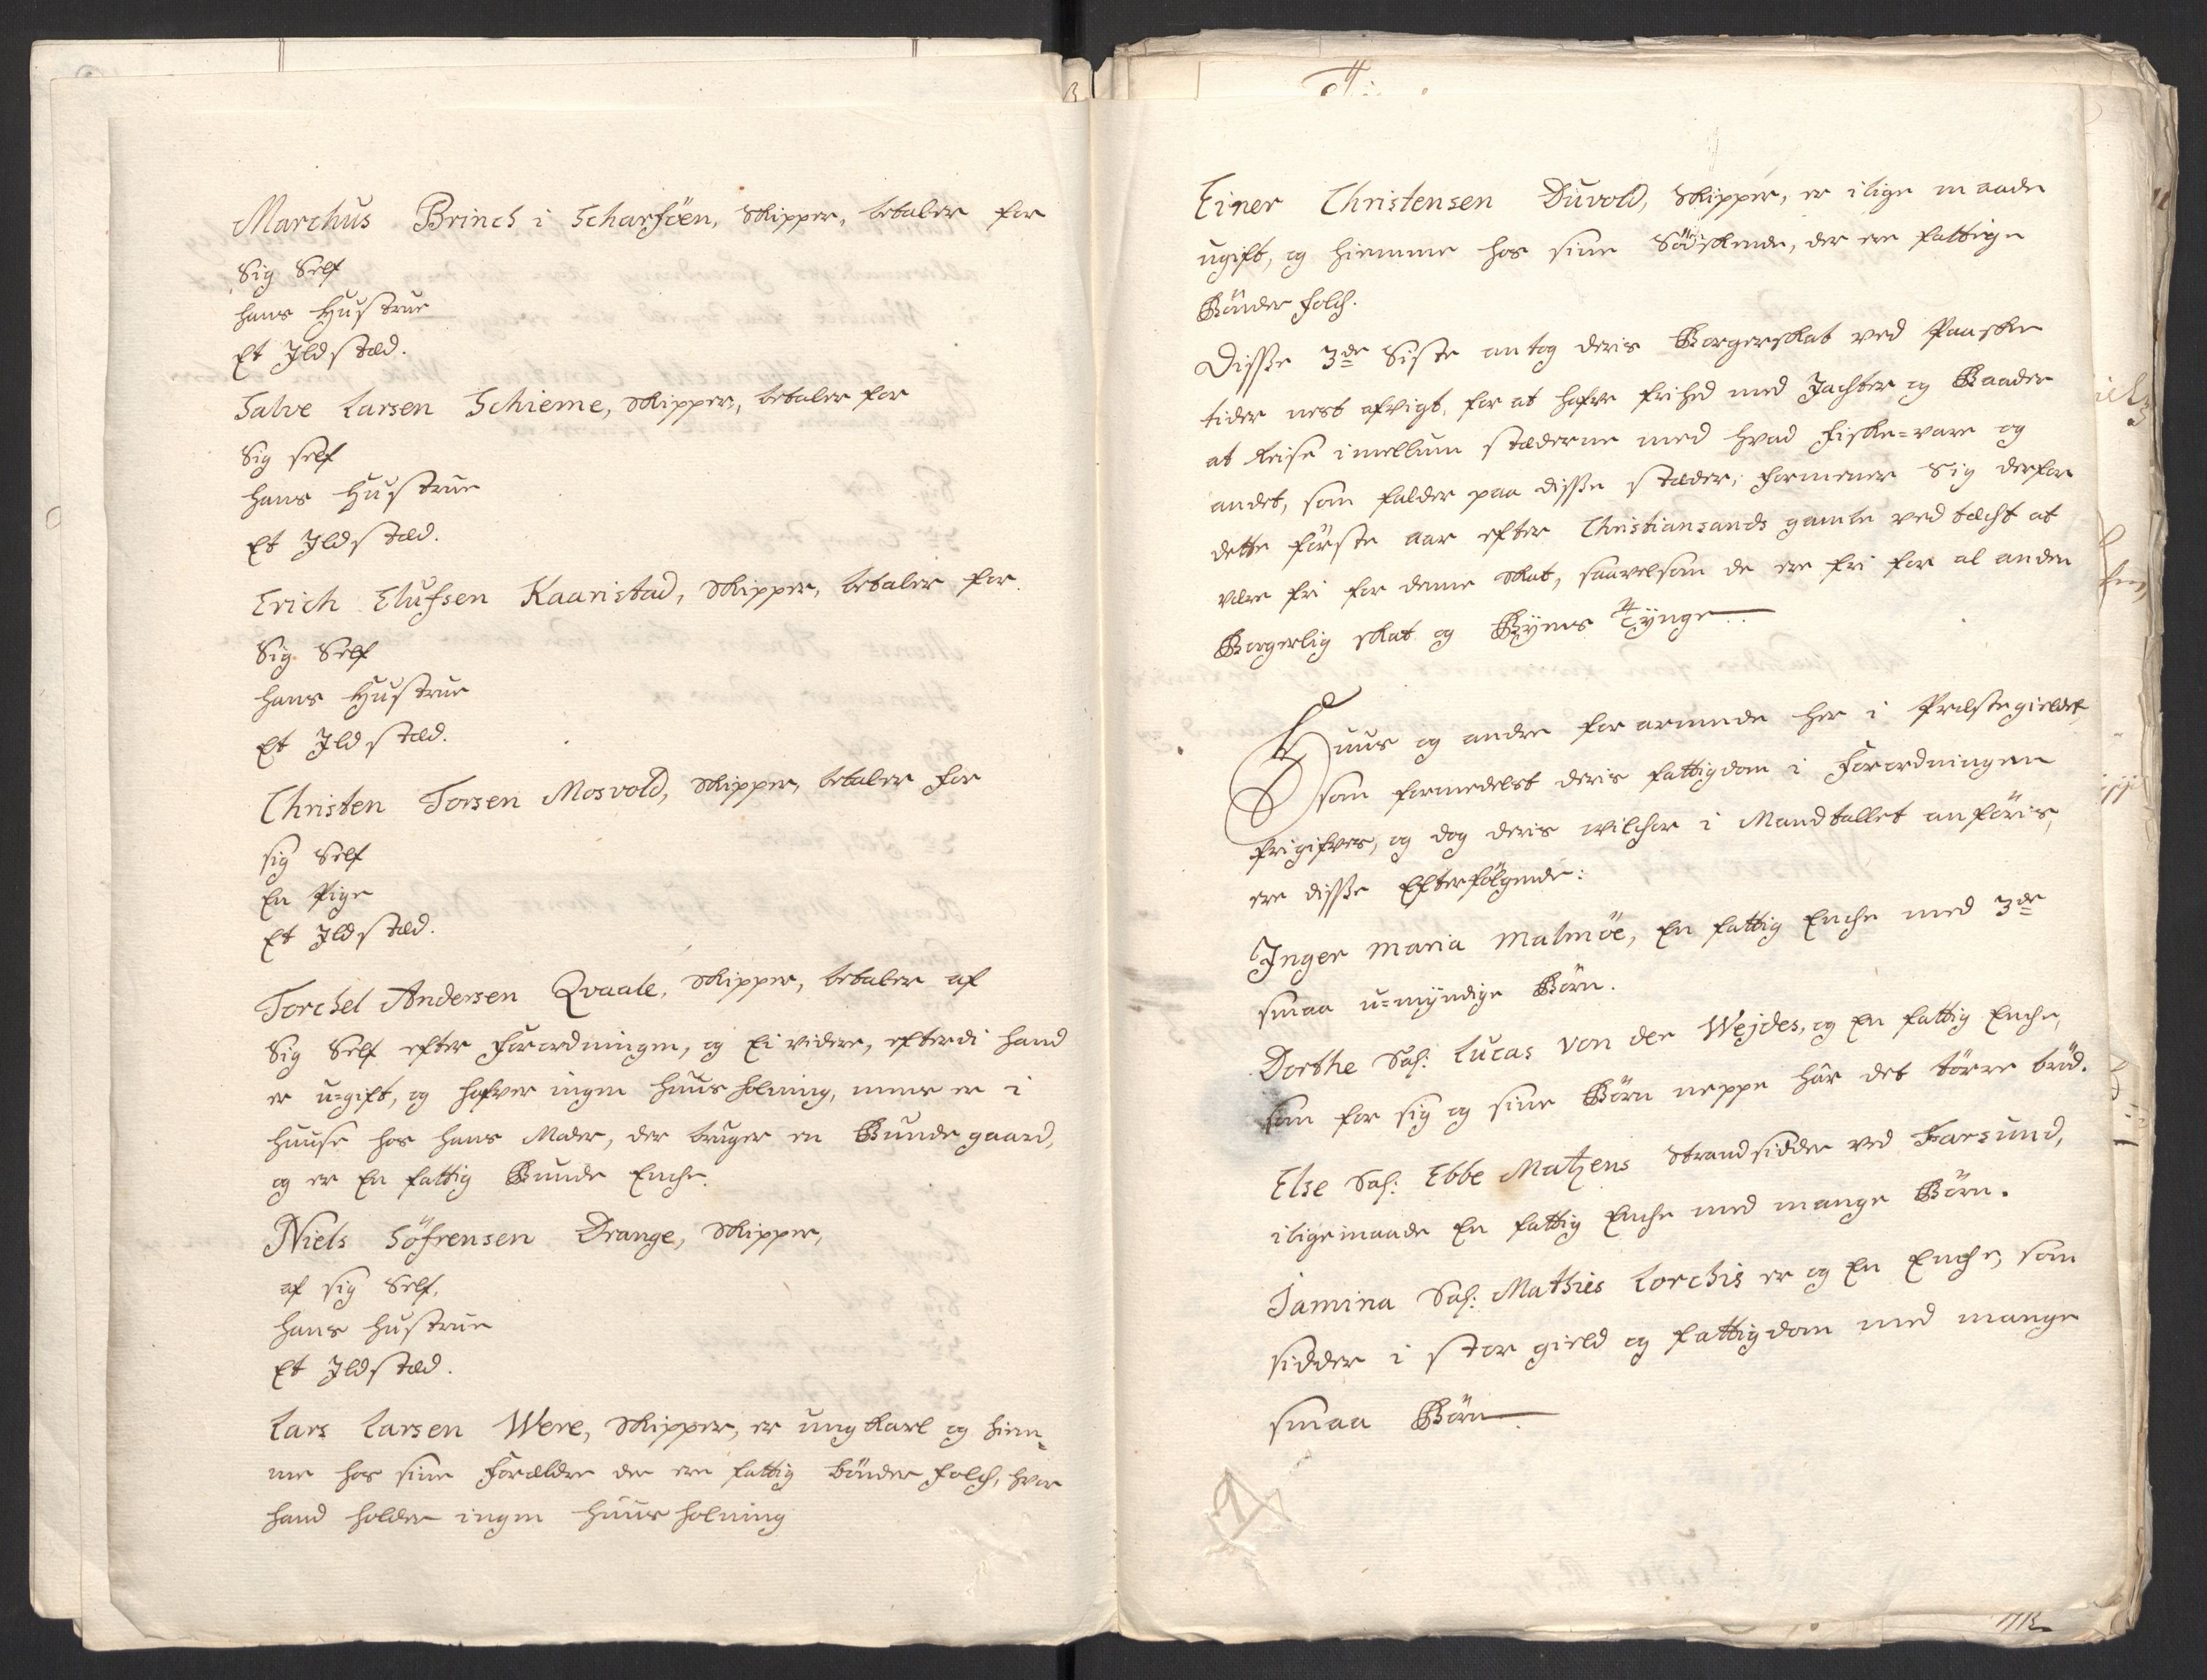 Marchus Brinch i Scharföen, Skipper, betaler for
Sig Self
hans Hustrue
Et Jldstæd.
Salve Larsen Schieme, Skipper, betaler for
Sig self
hans Hustrue
Et Jldstæd.
Erich Elufsen Kaaristad, Skipper, betaler for
Sig Self
hans Hustrue
Et Jldstæd.
Christen Torsen Mosvold, Skipper, betaler for
sig Self
En Pige
Et Jldstæd.
Torchel Andersen Qvaale, Skipper, betaler af
Sig Self efter Forordningen, og Ei videre, efterdi hand
er u=gift, og hafver ingen huusholning, mens er i
huuse hos hans Moder, der bruger en Bunde gaard,
og er En fattig Bunde Enche.
Niels Söfrensen Drange, Skipper,
af sig Self,
hans hustrue
Et Jldstæd.
Lars Larsen Were, Skipper, er ung Karl og hiem=
me hos sine Forældre der ere fattig bönder folch, hvor
hand holder ingen huusholning
Einer Christensen Duvold, Skipper, er i lige maade
ugift, og hiemme hos sine Södskende, der ere fattige
Bönder folch.
Disse 3de Siste antog deris Borgerskab ved Paaske
tider nest afvigt, for at hafve frihed med Jachter og Baader
at Reise imellum stæderne med hvad Fiske=vare og
andet, som falder paa disse stæder; formener Sig derfor
dette förste aar efter Christiansands gamle vedtæcht at
være fri for denne Skat, saavelsom de ere fri for al anden
Borgerlig skat og Byens Tynge.
Huus og andre forarmede her i Præstegieldet
som formedelst deris fattigdom i Forordningen
frigifves, og dog deris wilchor i Mandtallet anföris,
ere disse Efterfölgende:
Inger Maria Malmöe, En fattig Enche med 3de
smaa u=myndige Börn.
Dorthe Sal: Lucas von der Wejdes, og En fattig Enche,
som for sig og sine Börn neppe hâr det törre bröd.
Else Sal: Ebbe Matzens Strandsidder ved Farsund,
iligemaade En fattig Enche med mange Börn.
Jamina Sal: Mathies Lorchis er og En Enche, som
sidder i stor gield og fattigdom med mange
smaa Börn.